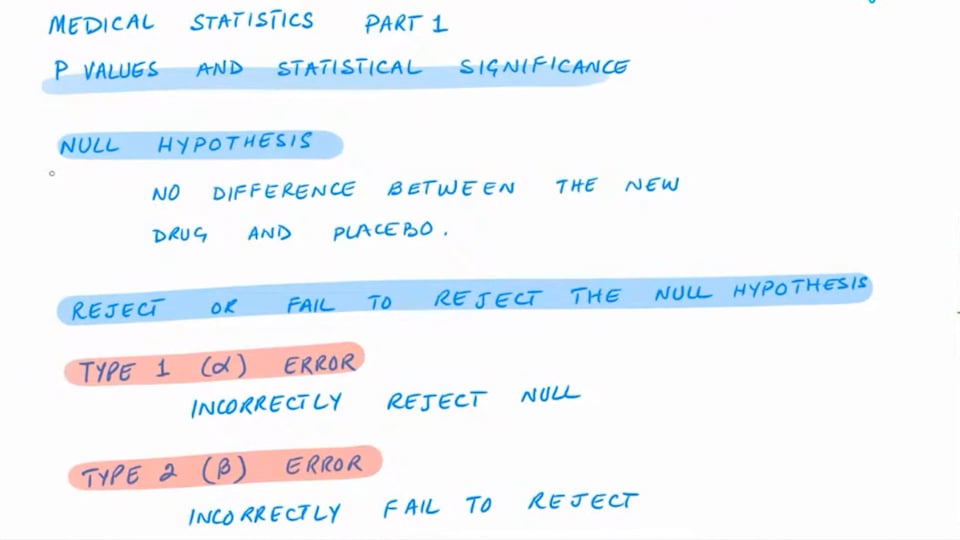 MEDICAL STATISTICS PART 1
P VALUES AND STATISTICAL SIGNIFICANCE
NULL HYPOTHESIS
NO DIFFERENCE BETWEEN THE NEW
DRUG AND PLACEBO.
REJECT OR FAIL TO REJECT THE NULL HYPOTHESIS
TYPE 1 (α) ERROR
INCORRECTLY REJECT NULL
TYPE 2 (β) ERROR
INCORRECTLY FAIL TO REJECT